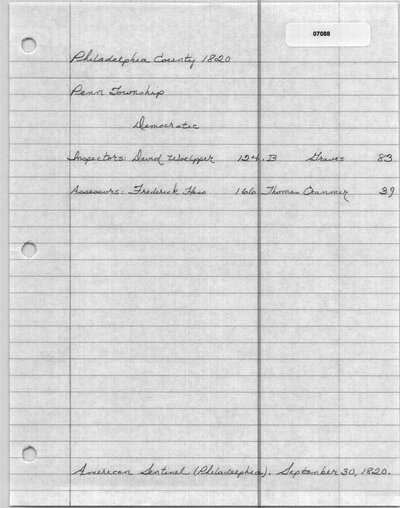 07088
Philadelphia County 1820
Penn Township
Democratic
Inspectors: David Woelpper 124. B Graves 83
Assessors: Frederick Haas 166 Thomas Cranmer 39
American Sentinel (Philadelphia). September 30, 1820.